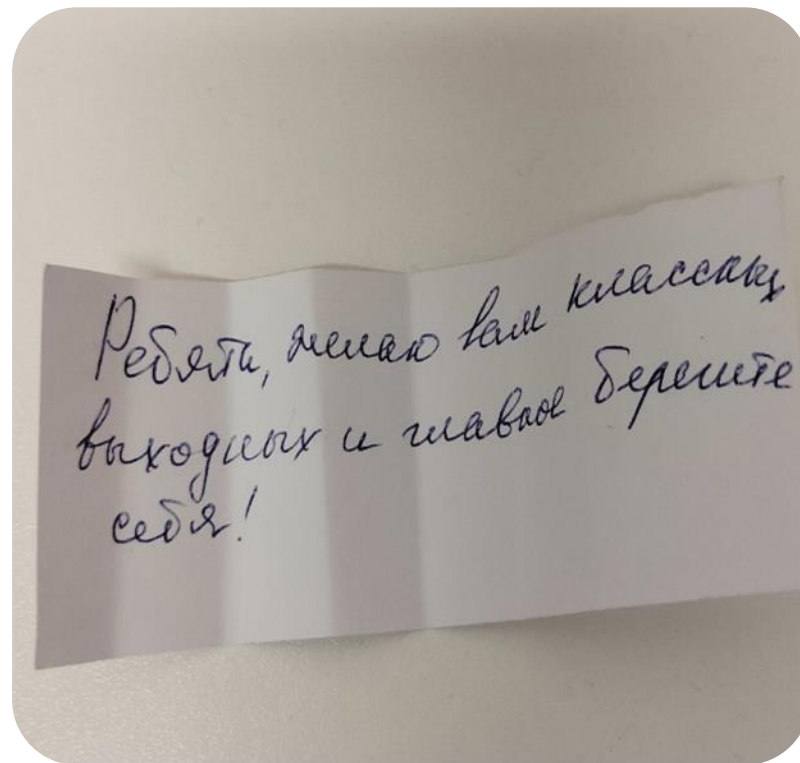 Ребята, желаю вам классных
выходных и главное берегите
себя!